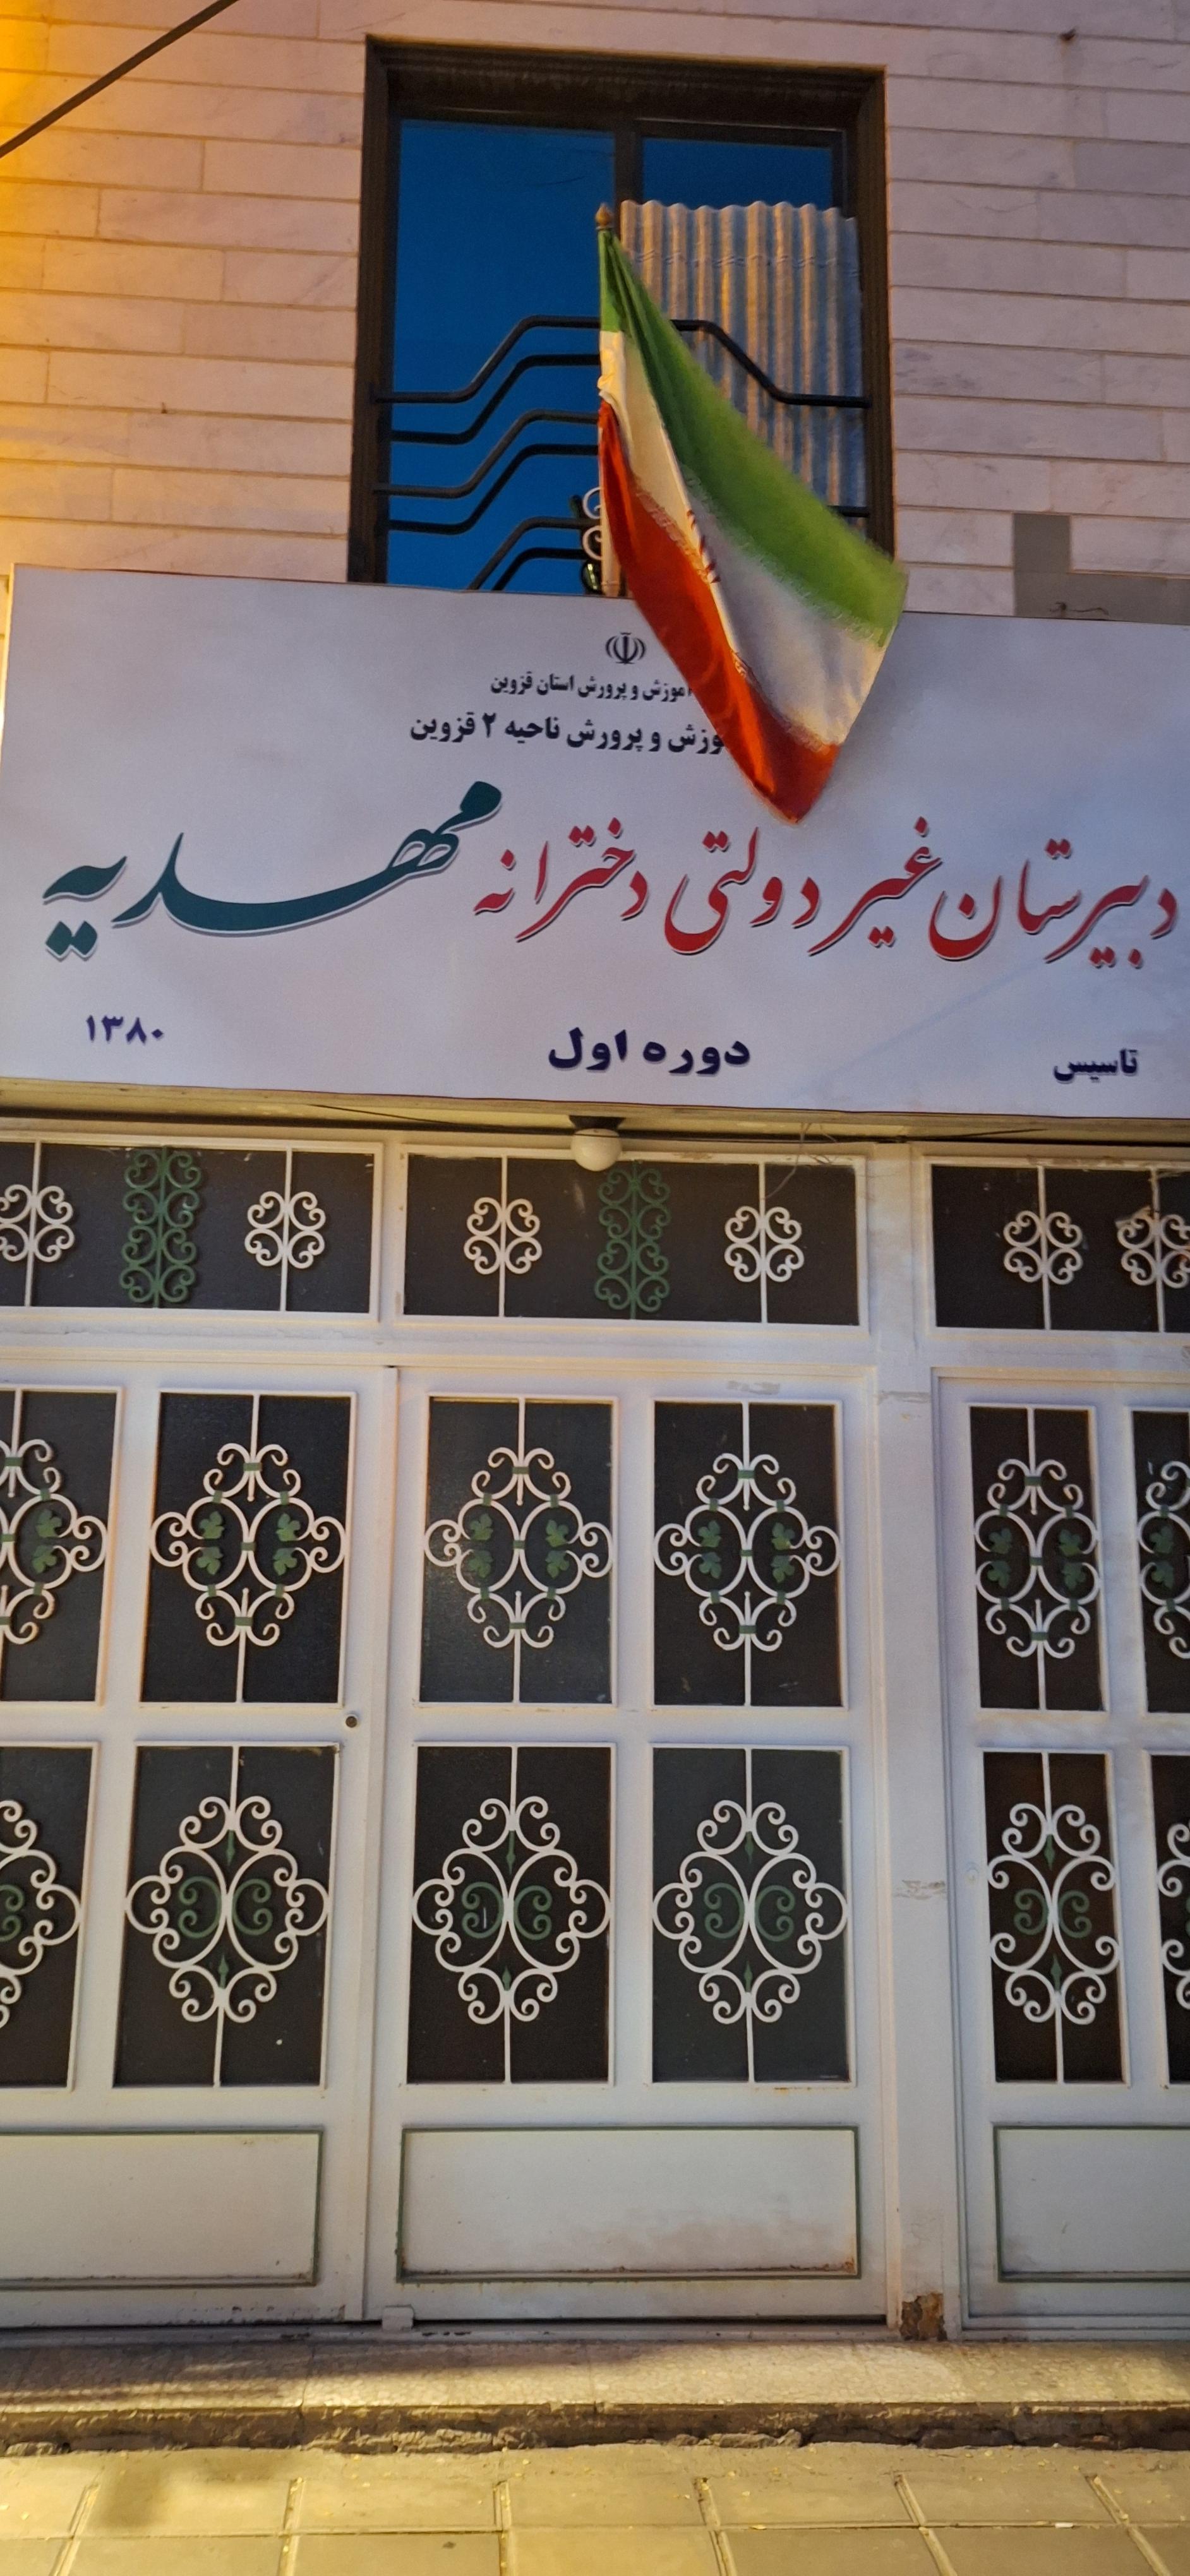 آموزش و پرورش استان قزوین
وزش و پرورش ناحیه ۲ قزوین
دبیرستان غیر دولتی دخترانه مهدیه
دوره اول
تاسیس ۱۳۸۰